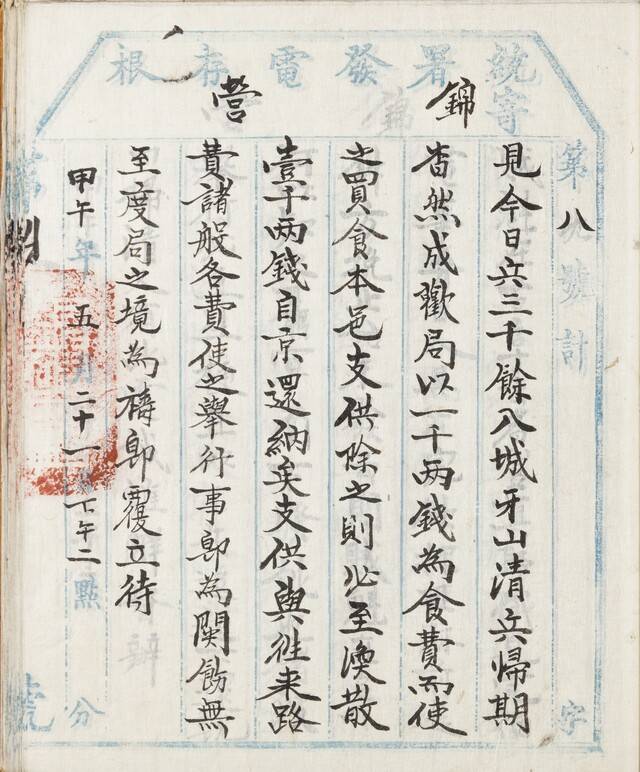 統署發電存根
寄錦營
第八號計 字
見今日兵三千餘入城牙山清兵歸期
杳然成歡局以一千兩錢為食費而使
之買食本邑支供除之則必至渙散
壹千兩錢自京還納矣支供與往來路
費諸般各費使之擧行事卽為関飭無
至度局之境為禱卽覆立待
甲午年五月二十一日下午二點 分
號